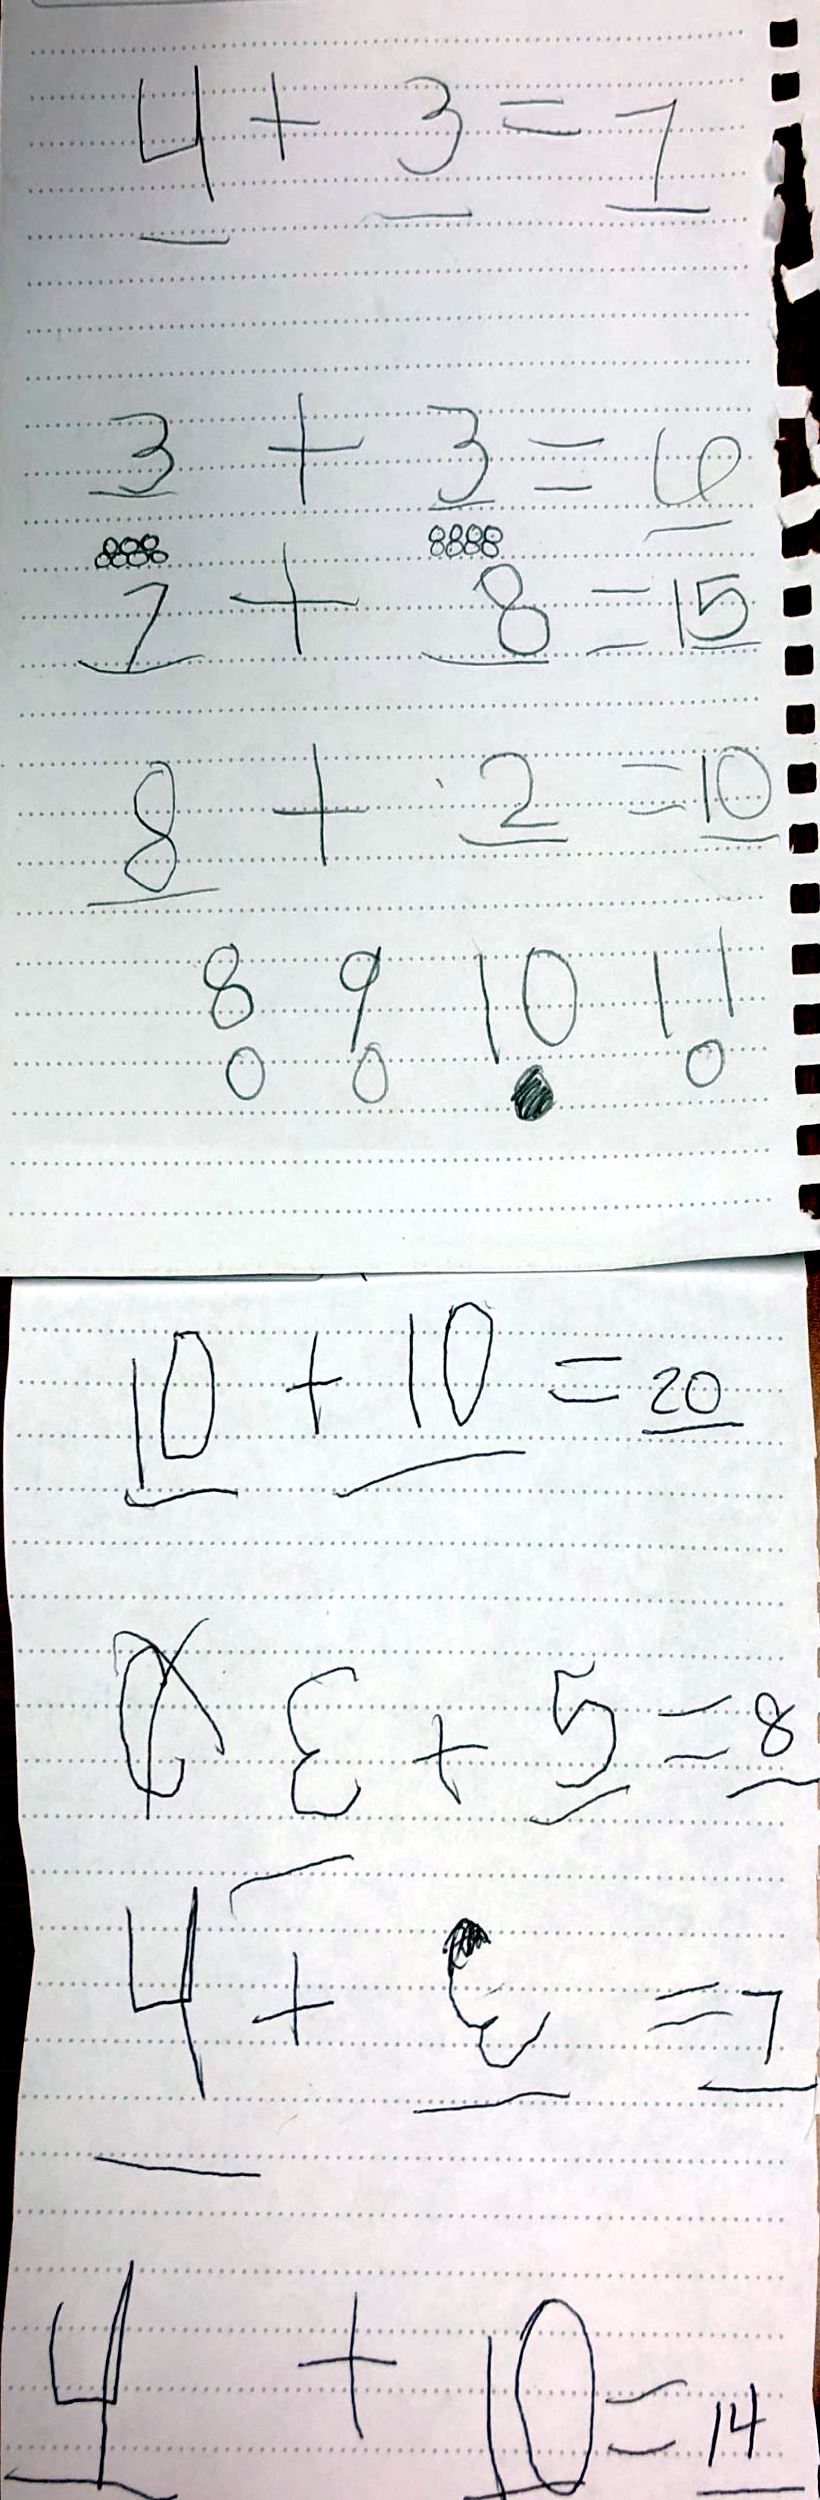 4 + 3 = 7
3 + 3 = 6
7 + 8 = 15
8 + 2 = 10
8 9 10 11
10 + 10 = 20
3 + 5 = 8
4 + 3 = 7
4 + 10 = 14